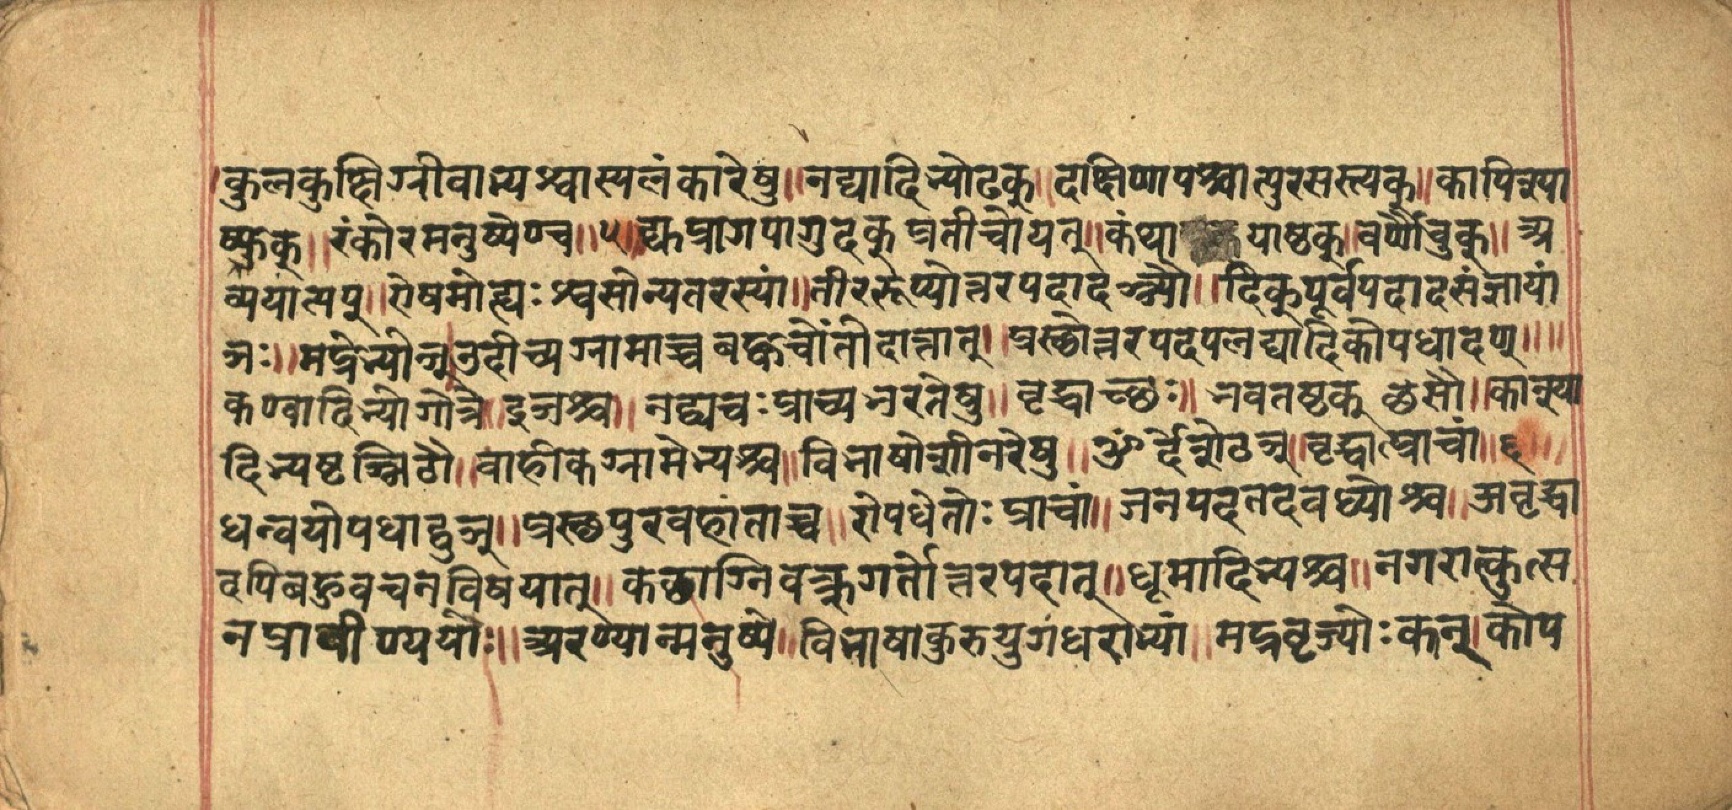 कुलकुक्षिग्रीवाभ्यश्वास्यलंकारेषु॥नद्यादिभ्योढक्॥दक्षिणापश्चात्पुरसस्त्यक्॥कापिश्या
ष्फक्॥रंकोरमनुष्येण्च॥५॥द्युप्रागपागुदक्प्रतीचोयत्॥कंथा याष्ठक्॥वर्णौवुक्॥अ
व्ययात्यप्॥ऐषमोह्यःश्वसोन्यतरस्यां॥तीररूप्योत्तरपदादञ्ञ्यौ॥दिक्पूर्वपदादसंज्ञायां
ञः॥मद्रेभ्योञ्॥उदीच्यग्रामाच्चबह्वचोंतोदात्तात्॥प्रस्थोत्तरपदपलद्यादिकोपधादण्॥॥
कण्वादिभ्योगोत्रे॥इञश्च॥नद्व्यचःप्राच्यभरतेषु॥वृद्धाच्छः॥भवतष्ठक्छसौ॥काश्या
दिभ्यष्टञ्ञिठौ॥वाहीकग्रामेभ्यश्च॥विभाषोशीनरेषु॥ओर्देशेठञ्॥वृद्धात्प्राचां॥६॥
धन्वयोपधाद्वुञ्॥प्रस्थपुरवहांताच्च॥रोपधेतोःप्राचां॥जनपदतदवध्योश्च॥अवृद्धा
दपिबहुवचनविषयात्॥कच्छाग्निवक्त्रगर्तोत्तरपदात्॥धूमादिभ्यश्च॥नगरात्कुत्स
नप्रावीण्ययोः॥अरण्यान्मनुष्ये॥विभाषाकुरुयुगंधराभ्यां॥मद्रवृज्योःकन्॥कोप